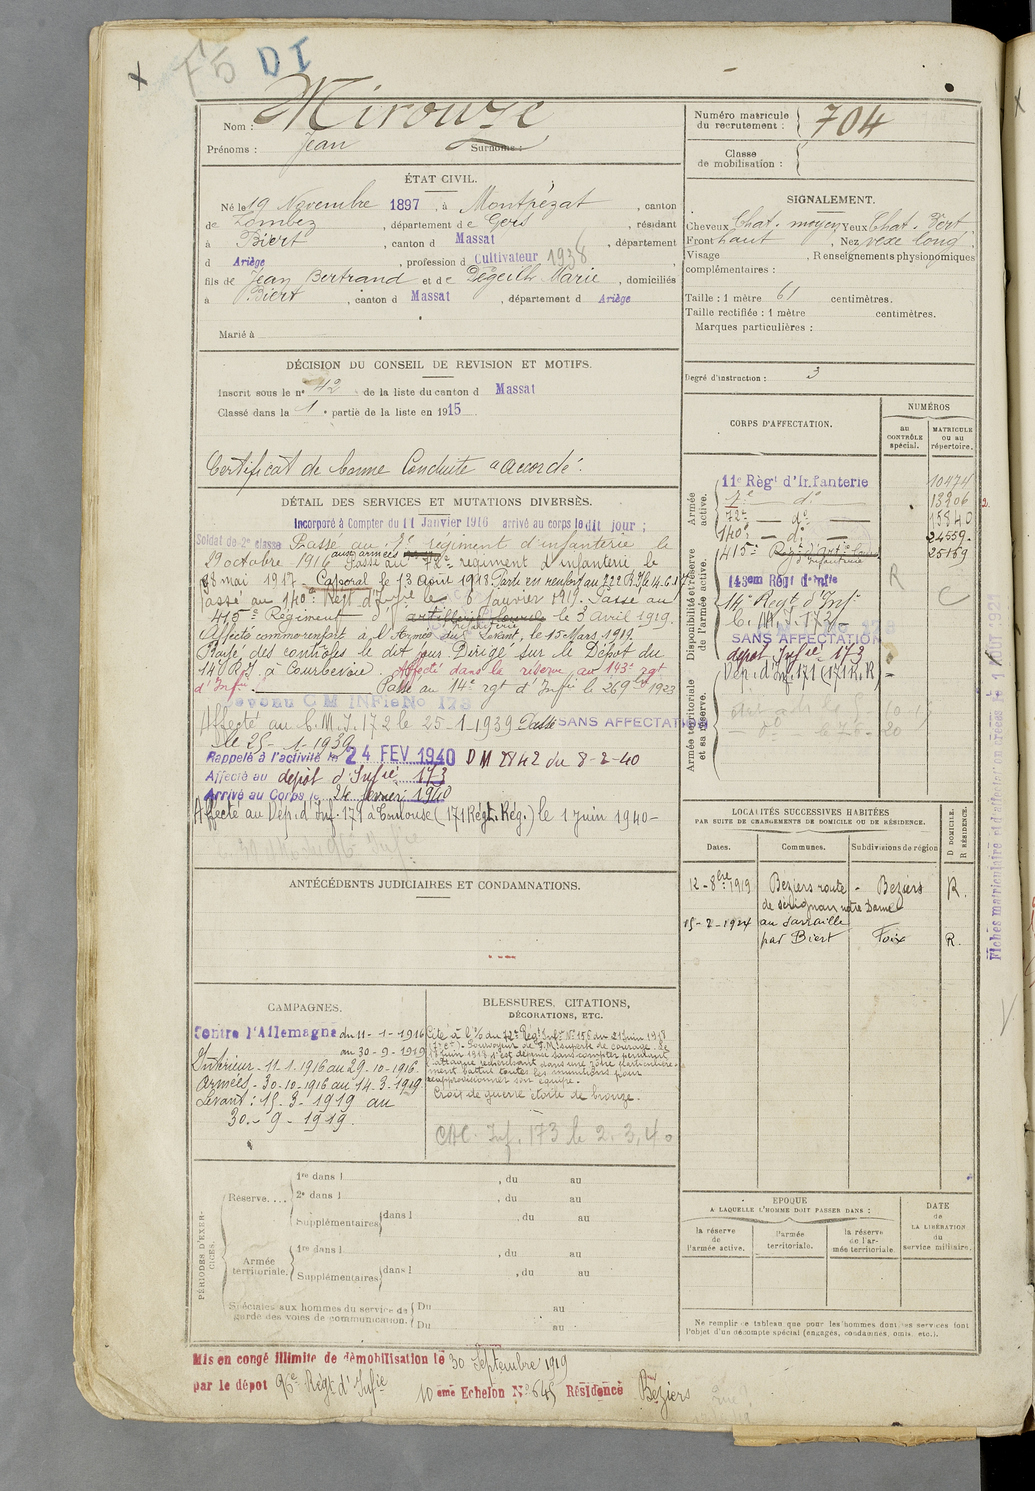 F5 DI
Nom : Mirouze
Prénoms : Jean Surnoms :
Numéro matricule du recrutement : 704
Classe de mobilisation :
ÉTAT CIVIL.
Né le 19 Novembre 1897, à Montpézat, canton
de Lombez, département de Gers, résidant
à Biert, canton d Massat, département
d Ariège, profession d Cultivateur 1938
fils de Jean Bertrand et de Degeilh Marie, domiciliés
à Biert, canton d Massat, département d Ariège
Marié à
SIGNALEMENT.
Cheveux Chat. moyen Yeux Chat. Vert
Front haut, Nez vexe long
Visage Renseignements physionomiques
complémentaires :
Taille : 1 mètre 61 centimètres.
Taille rectifiée : 1 mètre centimètres.
Marques particulières :
Degré d'instruction : 3
DÉCISION DU CONSEIL DE REVISION ET MOTIFS.
Inscrit sous le n° 42 de la liste du canton d Massat
Classé dans la 1e partie de la liste en 1915
Certificat de bonne Conduite "accordé".
CORPS D'AFFECTATION.
NUMÉROS
au CONTRÔLE spécial.
MATRICULE ou au répertoire.
Armée active.
11e Régt d'Infanterie 10474
7e — do 13206
72e — do — 15840
140e — do — 24559
415e 25169
Disponibilité et réserve de l'armée active.
143em Régt d'Infie
14e Regt d'Inf
C. M. I. 172
SANS AFFECTATION
depot Infie 173
Dép. d'Inf. 171 (171 R.R)
R
C
Armée territoriale et sa réserve.
DÉTAIL DES SERVICES ET MUTATIONS DIVERSES.
Incorporé à Compter du 11 Janvier 1916 arrivé au corps le dit jour ;
Soldat de 2e classe Passé au 7e régiment d'infanterie le
29 octobre 1916 aux armées Passé au 72e régiment d'infanterie le
28 mai 1917 - Caporal le 13 Août 1918. Parti en renfort au 222 R.I. le 4.6.17
Passé au 140e Régt d'Infie le 6 Janvier 1919. Passé au
415e Régiment d' artillerie lourde infanterie le 3 avril 1919.
Affecté comme renfort à l'Armée du Levant, le 15 Mars 1919.
Rayé des contrôles le dit jour. Dirigé sur le Dépôt du
140 R.I. à Courbevoie. Affecté dans la réserve au 143e rgt
d'Infie Passé au 14e rgt d'Infie le 26 9bre 1923
Devenu C M INFIe No 173
Affecté au C.M.I. 172 le 25-1-1939 Passé SANS AFFECTATION
le 25-1-1939
Rappelé à l'activité le 24 FEV 1940 DM 2842 du 8-2-40
Affecté au depôt d'Infie 173
Arrivé au Corps le 24 fevrier 1940
Affecté au Dép. d'Inf. 171 à Toulouse (171 Régt. Rég.) le 1 Juin 1940-
LOCALITÉS SUCCESSIVES HABITÉES
PAR SUITE DE CHANGEMENTS DE DOMICILE OU DE RÉSIDENCE.
Dates. Communes. Subdivisions de région D DOMICILE. R RÉSIDENCE.
12-8bre 1919 Beziers route - Beziers R.
de serignan notre Dame
15-2-1924 au Sarraille
par Biert Foix R.
ANTÉCÉDENTS JUDICIAIRES ET CONDAMNATIONS.
CAMPAGNES.
Contre l'Allemagne du 11-1-1916
au 30-9-1919
Intérieur - 11.1.1916 au 29-10-1916.
Armées - 30-10-1916 au 14-3-1919
Levant : 15-3-1919 au
30-9-1919.
BLESSURES, CITATIONS,
DÉCORATIONS, ETC.
Cité à l'o/ du 72e Régt Infie No 156 du 21 Juin 1918
Croix de guerre étoile de bronze.
CAC. Inf. 173 le 2.3.40
PÉRIODES D'EXERCICES.
Réserve.... 1re dans l , du au
2e dans l , du au
Supplémentaires dans l , du au
Armée territoriale. 1re dans l , du au
Supplémentaires dans l , du au
Spéciales aux hommes du service de garde des voies de communication. Du au
Du au
EPOQUE
A LAQUELLE L'HOMME DOIT PASSER DANS :
la réserve de l'armée active.
l'armée territoriale.
la réserve de l'armée territoriale.
DATE de LA LIBÉRATION du service militaire.
Ne remplir ce tableau que pour les hommes dont les services font l'objet d'un décompte spécial (engagés, condamnés, omis, etc.).
Mis en congé illimité de démobilisation le 30 Septembre 1919
par le dépot 96e Régt d'Infie 10eme Echelon No 645 Résidence Béziers